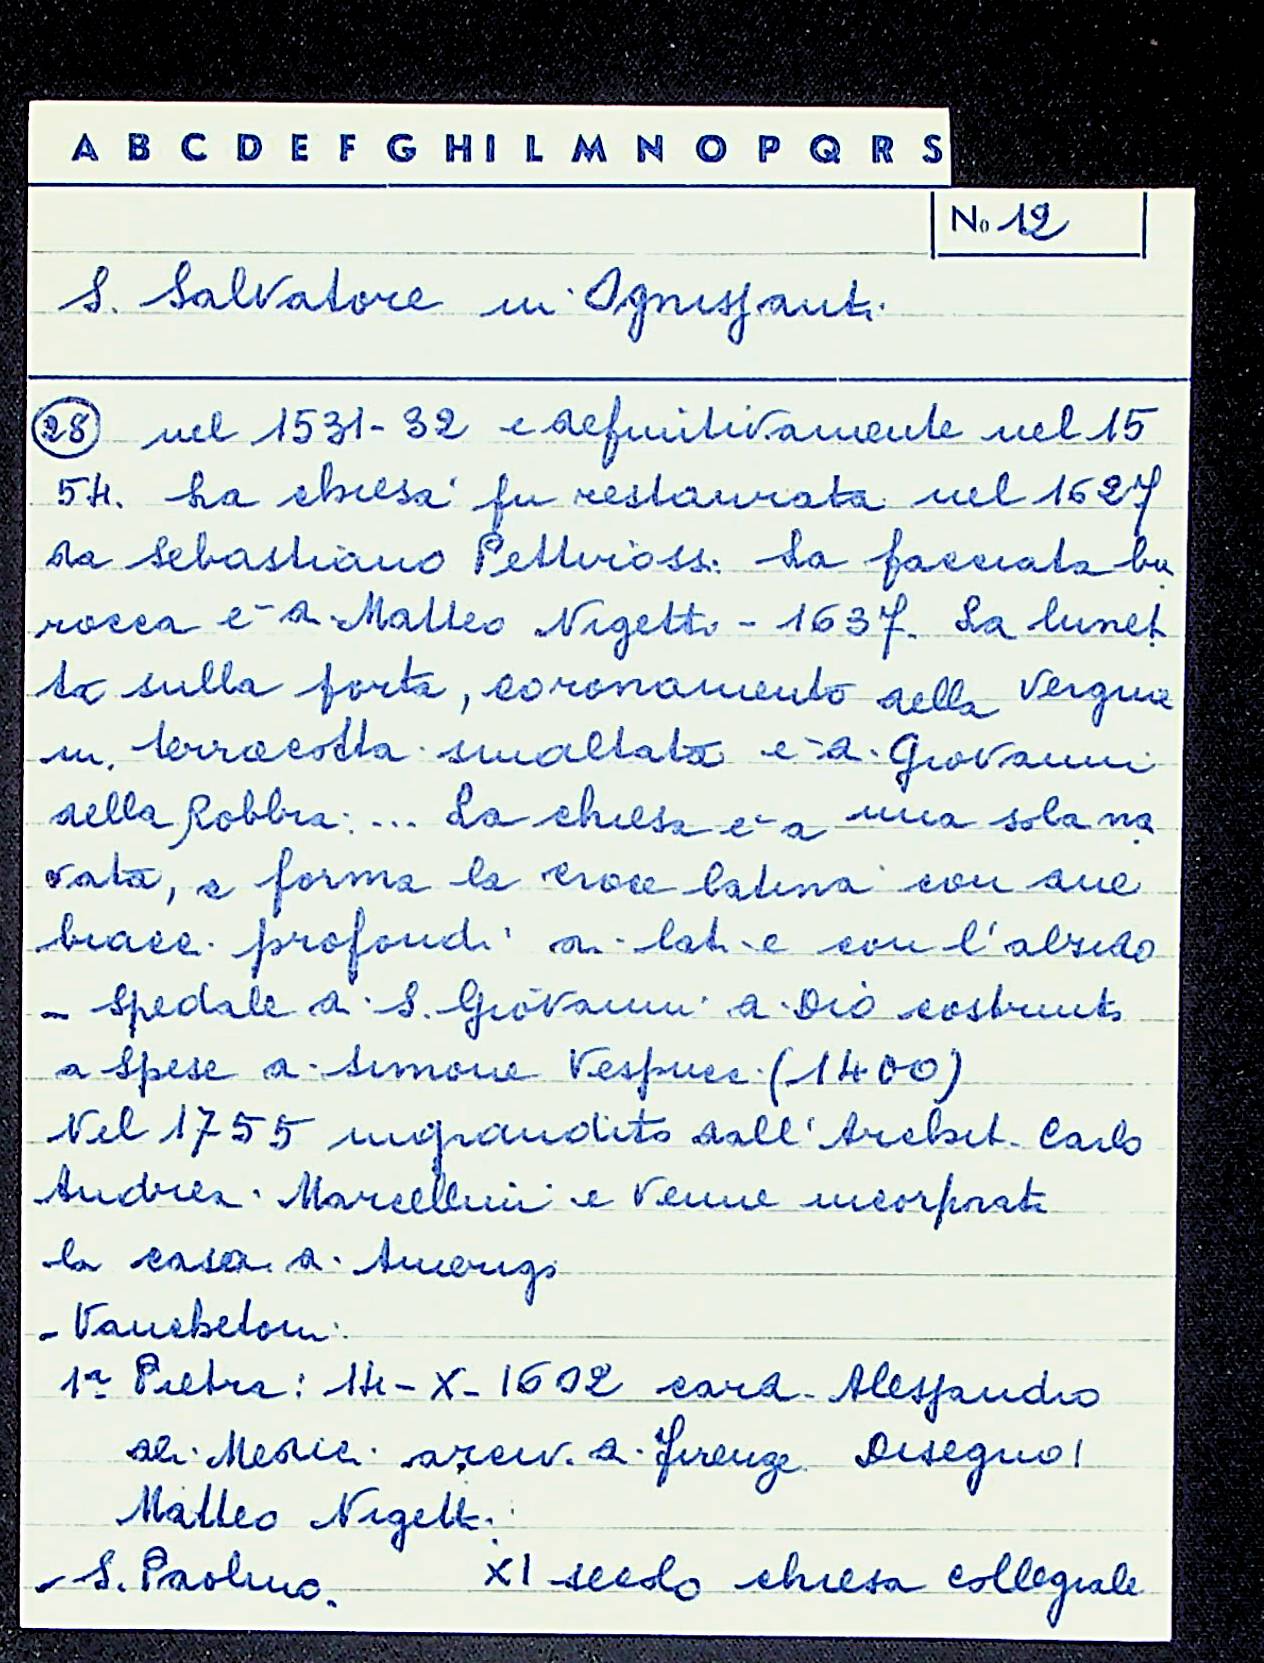 A B C D E F G H I L M N O P Q R S
No 12
S. Salvatore in Ognissanti
28 nel 1531-32 e definitivamente nel 15
54. La chiesa fu restaurata nel 1627
da Sebastiano Pettirossi. La facciata ba
rocca è di Matteo Nigetti - 1637. La lunet
ta sulla porta, coronamento della Vergine
in terracotta smaltata è di Giovanni
della Robbia.... La chiesa è a una sola na
vata, a forma la croce latina con due
bracci profondi ai lati e con l'abside
- Spedale di S. Giovanni di Dio costruito
a spese di Simone Vespucci (1400)
Nel 1755 ingrandito dall'Archit. Carlo
Andrea Marcellini e venne incorporata
la casa di Amerigo
- Vanchetoni
1ª Pietra: 14-X-1602 card. Alessandro
dei Medici arciv. di Firenze Disegno
Matteo Nigetti
- S. Paolino. XI secolo chiesa collegiale